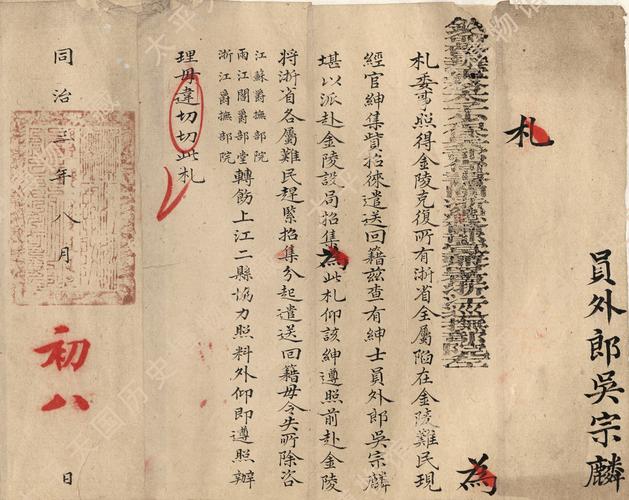 員外郎吳宗麟
札
為
札委事照得金陵克復所有浙省全屬陷在金陵難民現
經官紳集貲招徠遣送回籍茲查有紳士員外郎吳宗麟
堪以派赴金陵設局招集為此札仰該紳遵照前赴金陵
將浙省各屬難民趕緊招集分起遣送回籍毋令失所除咨
江蘇爵撫部院
兩江閣爵部堂
浙江爵撫部院
轉飭上江二縣協力照料外仰即遵照辦
理毋違切切此札
同治三年八月初八日